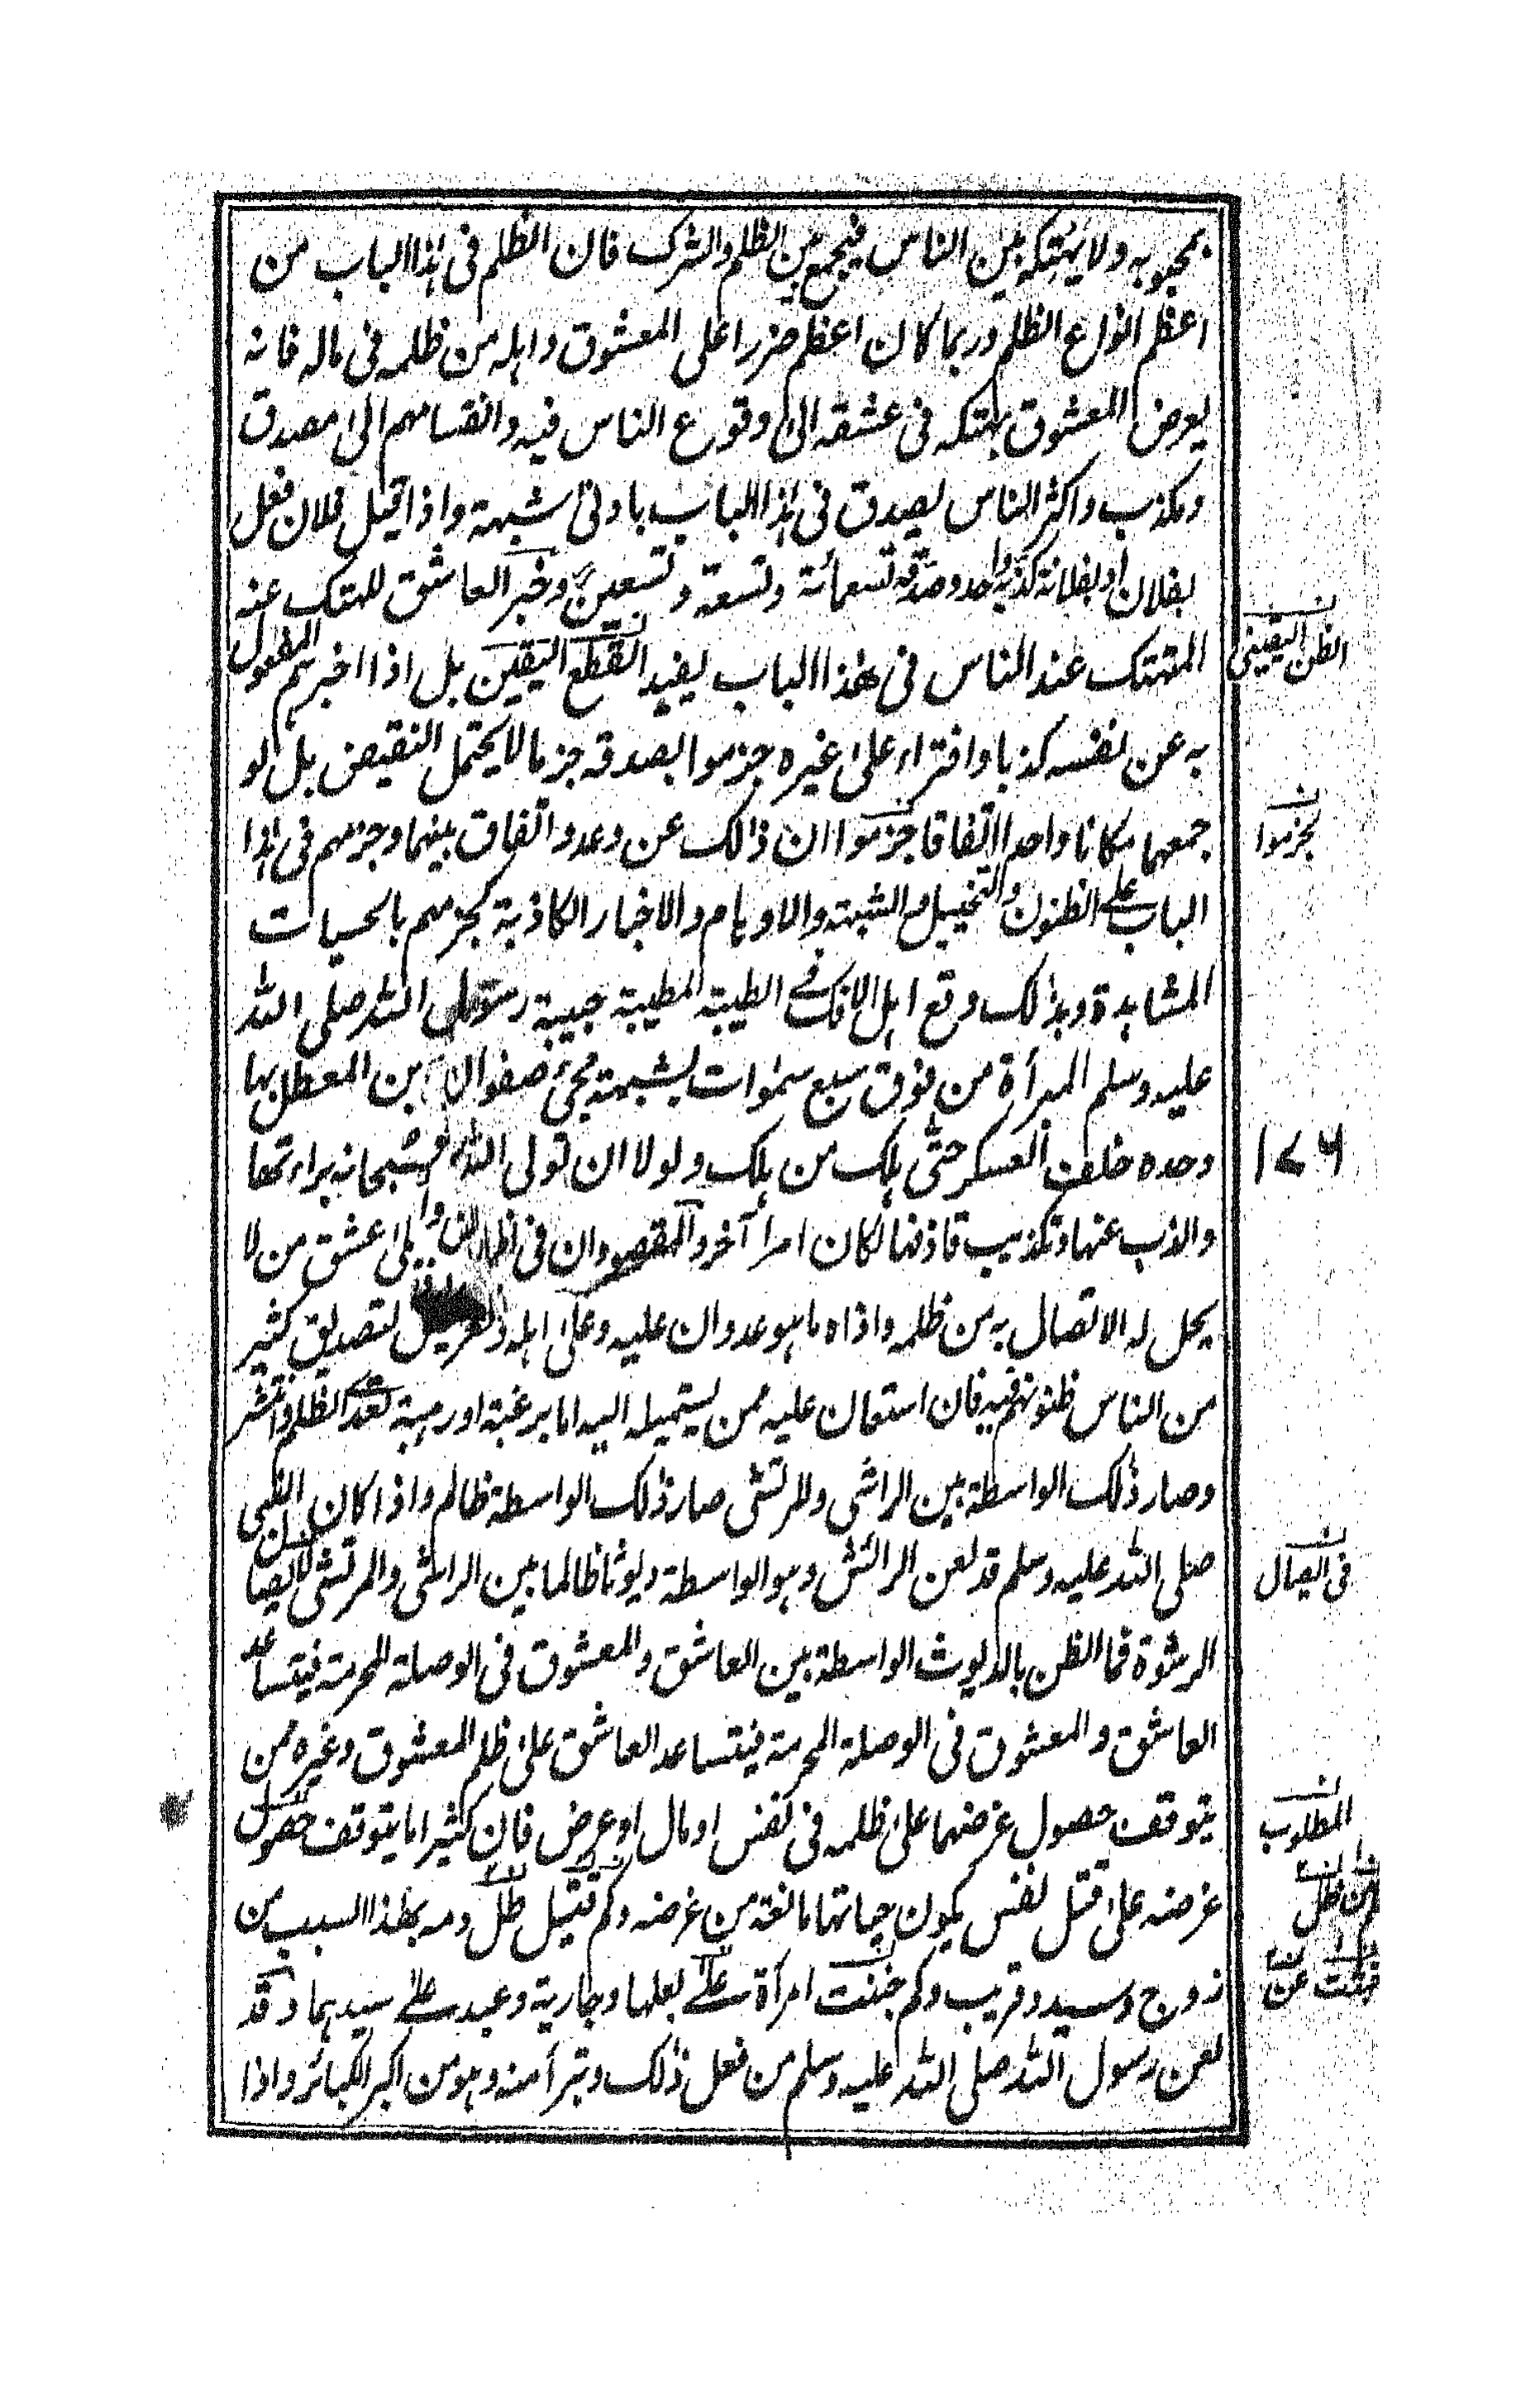 بمحبوبه ولا يهتكه بين الناس فيجمع بين الظلم والشرك فان الظلم فى هذا الباب من
اعظم انواع الظلم وربما كان اعظم ضررا على المعشوق واهله من ظلمه فى ماله فانه
يعرض المعشوق بهتكه فى عشقه الى وقوع الناس فيه وانقسامهم الى مصدق
ومكذب واكثر الناس يصدق فى هذا الباب بادنى شبهة واذا قيل فلان فعل
بفلان او بفلانة كذبه واحد وصدقه تسعمائة وتسعة وتسعين وخبر العاشق للهتك عنه
المتهتك عند الناس فى هذا الباب يفيد القطع اليقين بل اذا اخبرهم المفعول
به عن نفسه كذبا وافتراء على غيره جزموا بصدقه جزما لا يحتمل النقيض بل لو
جمعهما مكانا واحدا اتفاقا جزموا ان ذالك عن وعد واتفاق بينهما وجزمهم فى هذا
الباب على الظنون والتخييل والشبهة والاوهام والاخبار الكاذبة كجزمهم بالحسيات
المشاهدة وبذلك وقع اهل الافك فى الطيبة المطيبة حبيبة رسول الله صلى الله
عليه وسلم المبرأة من فوق سبع سموات بشبهة مجئ صفوان بن المعطل بها
وحده خلف العسكر حتى هلك من هلك ولولا ان تولى الله سبحانه براءتها
والذب عنها وتكذيب قاذفها لكان امرا آخر والمقصود ان فى عشق من لا
يحل له الاتصال به من ظلمه واذاه ما هو عدوان عليه وعلى اهله وتعريض لتصديق كثير
من الناس ظنونهم فيه فان استعان عليه ممن يستميله اليه اما برغبة او رهبة تعدى الظلم وانتشر
وصار ذلك الواسطة بين الراشى والمرتشى صار ذلك الواسطة ظالم واذا كان النبى
صلى الله عليه وسلم قد لعن الرائش وهو الواسطة ديوثا ظالما بين الراشى والمرتشى لايصال
الرشوة فما الظن بالديوث الواسطة بين العاشق والمعشوق فى الوصلة المحرمة فيتساعد
العاشق والمعشوق فى الوصلة المحرمة فيتساعد العاشق على ظلم المعشوق وغيره ممن
يتوقف حصول غرضهما على ظلمه فى نفس او مال او عرض فان كثيرا ما يتوقف حصول
غرضه على قتل نفس يكون حياتها مانعة من غرضه وكم قتيل طل دمه بهذا السبب من
زوج وسيد وقريب وكم خببت امرأة على بعلها وجارية وعبد على سيدهما وقد
لعن رسول الله صلى الله عليه وسلم من فعل ذلك وتبرأ منه وهو من اكبر الكبائر واذا
الظن اليقينى
بجزموا
١٧٦
فى ايصال
المطلوب